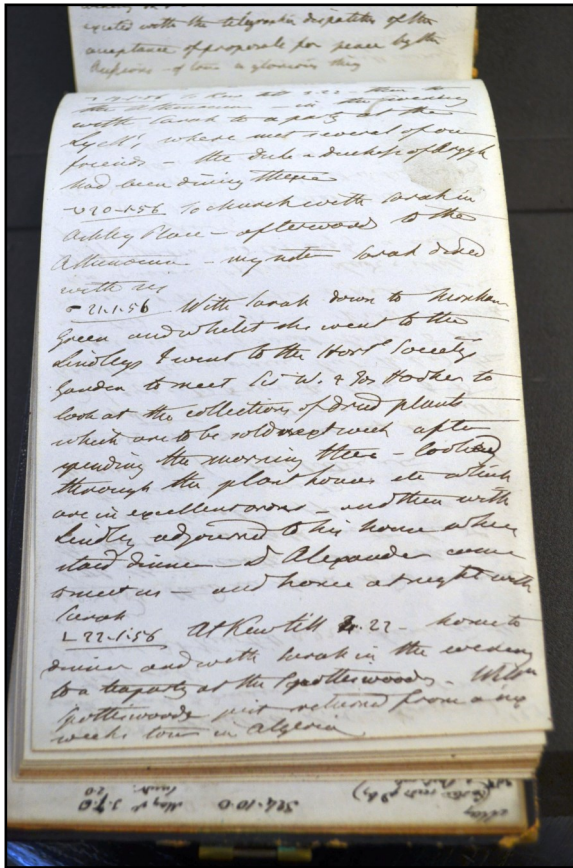 excited with the telegraphic dispatches of the
acceptance of proposals for peace by the
Russians - of course a glorious thing
to Kew till 2.22 - then to
the Athenaeum - in the evening
with Sarah to a party at the
Lyell's, where met several of our
friends - the Duke & Duchess of Argyll
had been dining there
20-1-56 To church with Sarah in
Ashley Place - afterwards to the
Athenaeum - my sister Sarah dined
with us
21.1.56 With Sarah down to Turnham
Green and whilst she went to the
Lindleys I went to the Hortl Society's
Garden to meet Sir W. & Jos Hooker to
look at the collections of dried plants
which are to be sold next week after
spending the morning there - looked
through the plant houses etc which
are in excellent order - and then with
Lindley adjourned to his house where
staid dinner - Dr Alexander came
to meet us - and home at night with
Sarah
22.1.56 At Kew till 4.22 - home to
dinner and with Sarah in the evening
to a teaparty at the Spottiswoodes -
Spottiswoode just returned from a six
weeks tour in Algeria
324-10-0